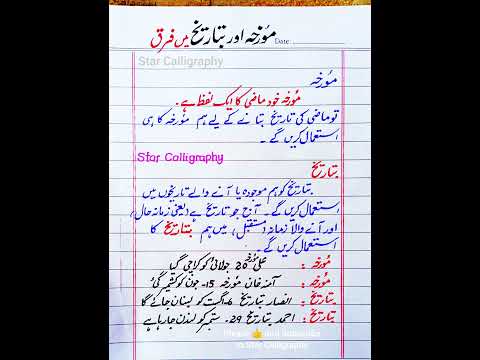 مؤرخہ اور بتاریخ میں فرق
Date:
Star Calligraphy
مؤرخہ
مؤرخہ خود ماضی کا ایک لفظ ہے۔
تو ماضی کی تاریخ بتانے کے لیے ہم مؤرخہ کا ہی
استعمال کریں گے۔
Star Calligraphy
بتاریخ
بتاریخ کو ہم موجودہ یا آنے والے تاریخوں میں
استعمال کریں گے۔ آج جو تاریخ ہے (یعنی زمانہ حال)
اور آنے والا زمانہ (مستقبل) میں ہم بتاریخ کا
استعمال کریں گے۔
مؤرخہ : علی مؤرخہ 20 جولائی کو کراچی گیا
مؤرخہ : آمنہ خان مؤرخہ 15- جون کو کشمیر گئی
بتاریخ : انصار بتاریخ 6- اگست کو لبنان جائے گا
بتاریخ : احمد بتاریخ 29- ستمبر کو لندن جا رہا ہے
Please 👍 and Subscribe
to Star Calligraphy